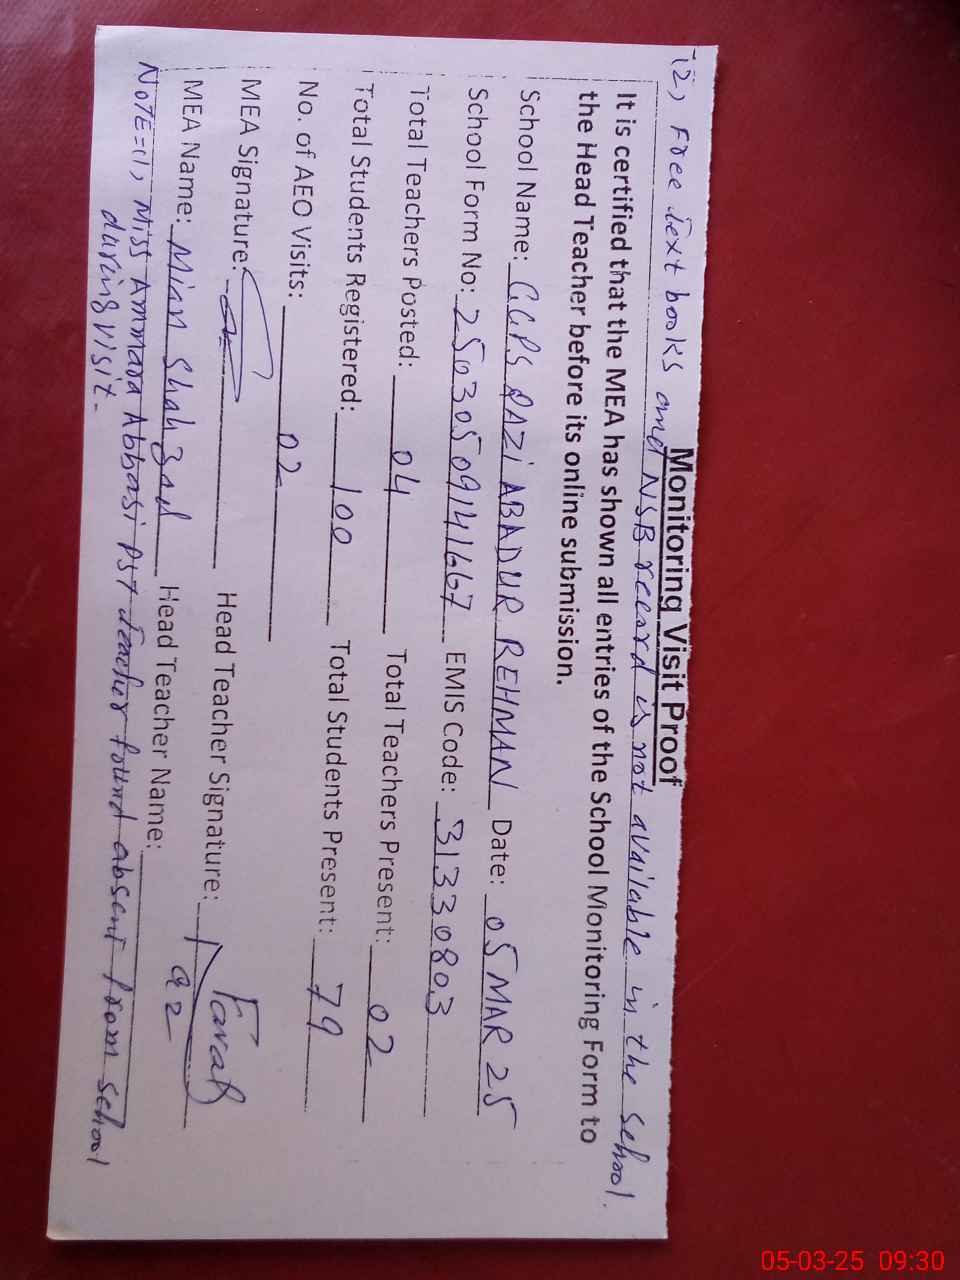 (2), Free Text books and NSB record is not available in the school.
Monitoring Visit Proof
It is certified that the MEA has shown all entries of the School Monitoring Form to
the Head Teacher before its online submission.
School Name: GGPS QAZI ABADUR REHMAN Date: 05 MAR 25
School Form No: 25030509141667 EMIS Code: 31330803
Total Teachers Posted: 04 Total Teachers Present: 02
Total Students Registered: 100 Total Students Present: 79
No. of AEO Visits: 02
MEA Signature: Head Teacher Signature: Farah
MEA Name: Mian Shahzad Head Teacher Name:
NOTE=(1), Miss Ammara Abbasi PST Teacher found absent from school
during visit-
05-03-25 09:30